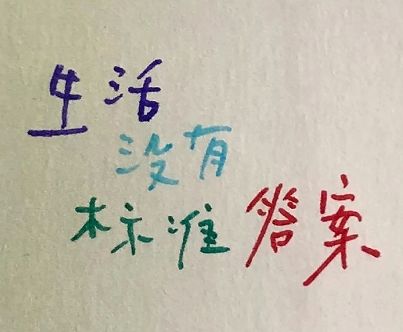 生活
没有
标准答案